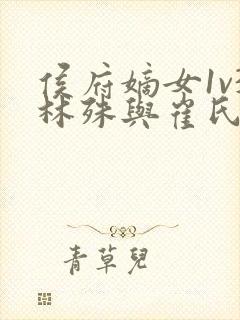 侯府嫡女1v
林殊與崔氏
青草兒